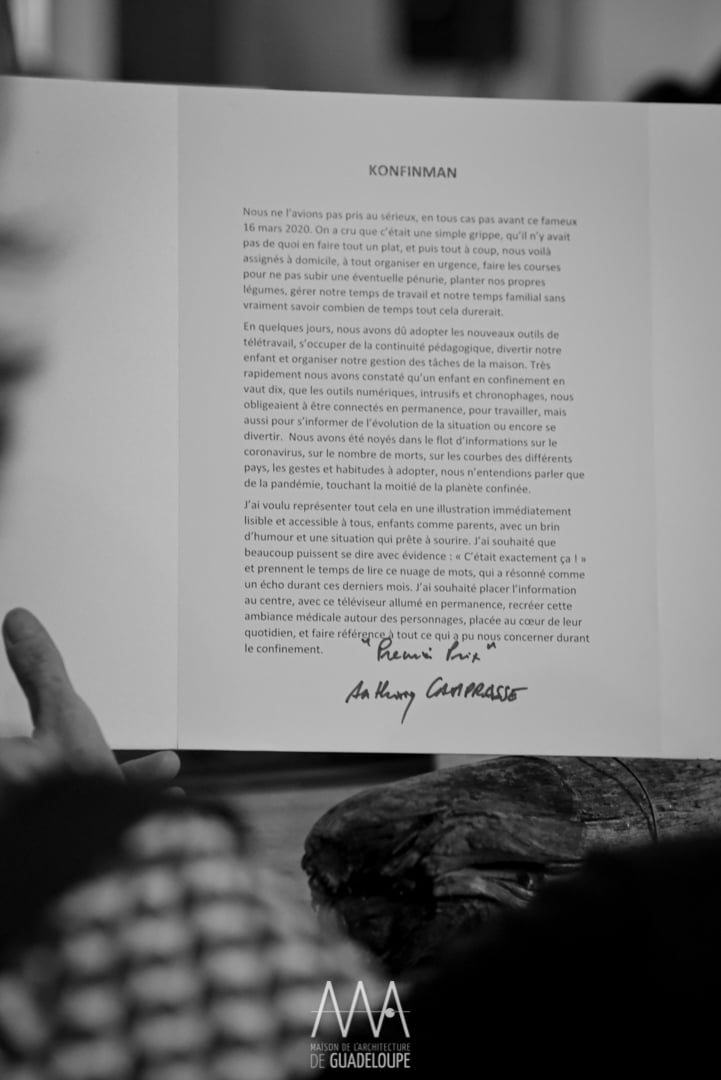 KONFINMAN
Nous ne l'avions pas pris au sérieux, en tous cas pas avant ce fameux
16 mars 2020. On a cru que c'était une simple grippe, qu'il n'y avait
pas de quoi en faire tout un plat, et puis tout à coup, nous voilà
assignés à domicile, à tout organiser en urgence, faire les courses
pour ne pas subir une éventuelle pénurie, planter nos propres
légumes, gérer notre temps de travail et notre temps familial sans
vraiment savoir combien de temps tout cela durerait.
En quelques jours, nous avons dû adopter les nouveaux outils de
télétravail, s'occuper de la continuité pédagogique, divertir notre
enfant et organiser notre gestion des tâches de la maison. Très
rapidement nous avons constaté qu'un enfant en confinement en
vaut dix, que les outils numériques, intrusifs et chronophages, nous
obligeaient à être connectés en permanence, pour travailler, mais
aussi pour s'informer de l'évolution de la situation ou encore se
divertir. Nous avons été noyés dans le flot d'informations sur le
coronavirus, sur le nombre de morts, sur les courbes des différents
pays, les gestes et habitudes à adopter, nous n'entendions parler que
de la pandémie, touchant la moitié de la planète confinée.
J'ai voulu représenter tout cela en une illustration immédiatement
lisible et accessible à tous, enfants comme parents, avec un brin
d'humour et une situation qui prête à sourire. J'ai souhaité que
beaucoup puissent se dire avec évidence : « C'était exactement ça ! »
et prennent le temps de lire ce nuage de mots, qui a résonné comme
un écho durant ces derniers mois. J'ai souhaité placer l'information
au centre, avec ce téléviseur allumé en permanence, recréer cette
ambiance médicale autour des personnages, placée au cœur de leur
quotidien, et faire référence à tout ce qui a pu nous concerner durant
le confinement.
"Premier Prix"
Anthony CAMPRASSE
MAISON DE L'ARCHITECTURE
DE GUADELOUPE